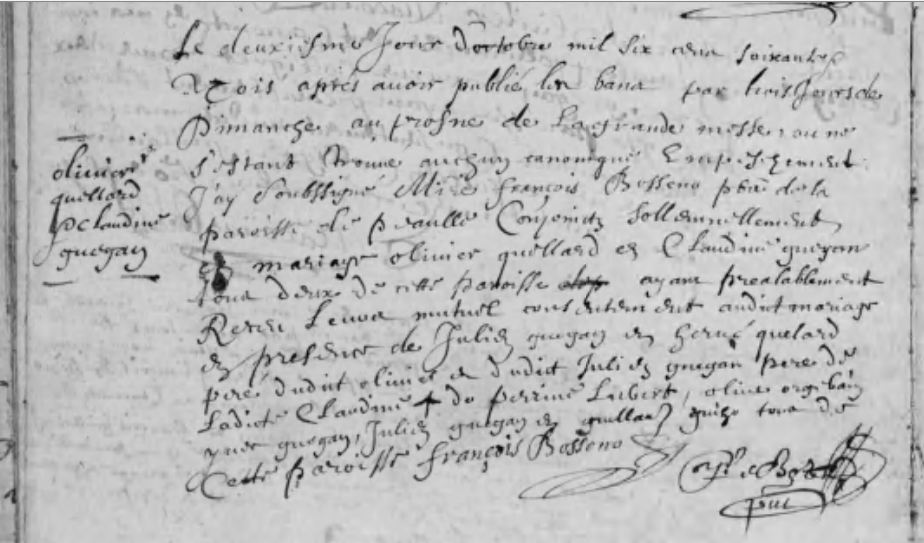 Le deuxiesme Jour d'octobre mil six cens soixante
& trois aprés avoir publié les bans par trois Jours de
Dimanche au prosne de La grande messe, ou ne
s'estant trouué aucun canonique Empeschement
J'ay Soubssigné Mire françois Bosseno pbre de la
paroisse de peaulle Conjoint Sollemnellement
en mariage olivier quellard et Claudine guegan
tous deux de cette paroisse ayant prealablement
Receu Leurs mutuel consentement audit mariage
en presence de Julien guegan et hervé quelard
pere dudit olivier et dudit Julien guegan pere de
Ladicte Claudine & de perrine Lubert, olivier
yves guegan, Julien guegan et guillau guizo tous de
Cette paroisse françois Bosseno
olivier
quellard
& Claudine
guegan